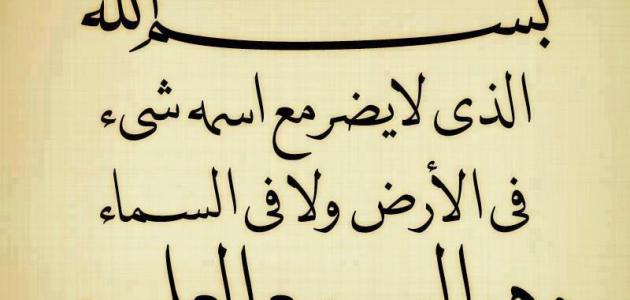 بسم الله
الذى لايضر مع اسمه شىء
فى الأرض ولا فى السماء
وهو السميع العليم